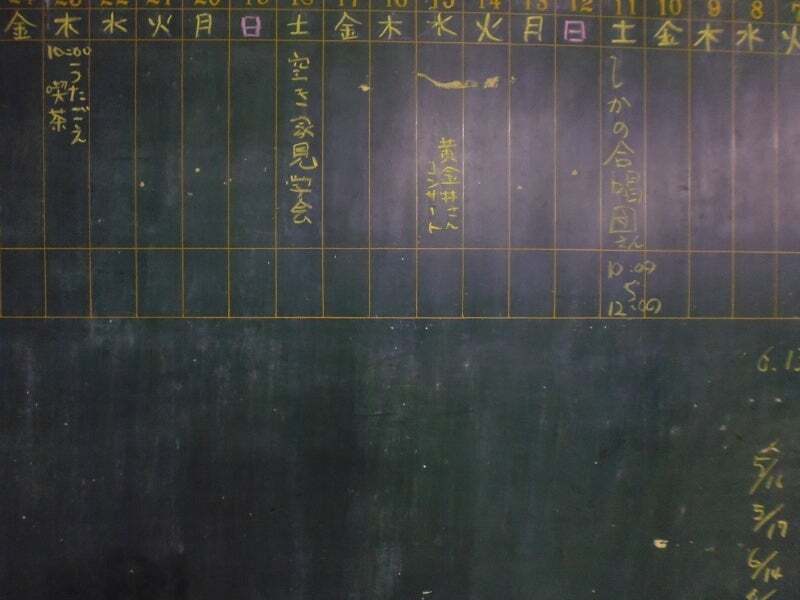 24 23 22 21 20 19 18 17 16 15 14 13 12 11 10 9 8 7
金 木 水 火 月 日 土 金 木 水 火 月 日 土 金 木 水 火
しかの合唱団さん
10:00
〜
12:00
黄金井さん
コンサート
空き家見学会
10:00〜
うたごえ
喫茶
6.13
5/16
5/17
6/14